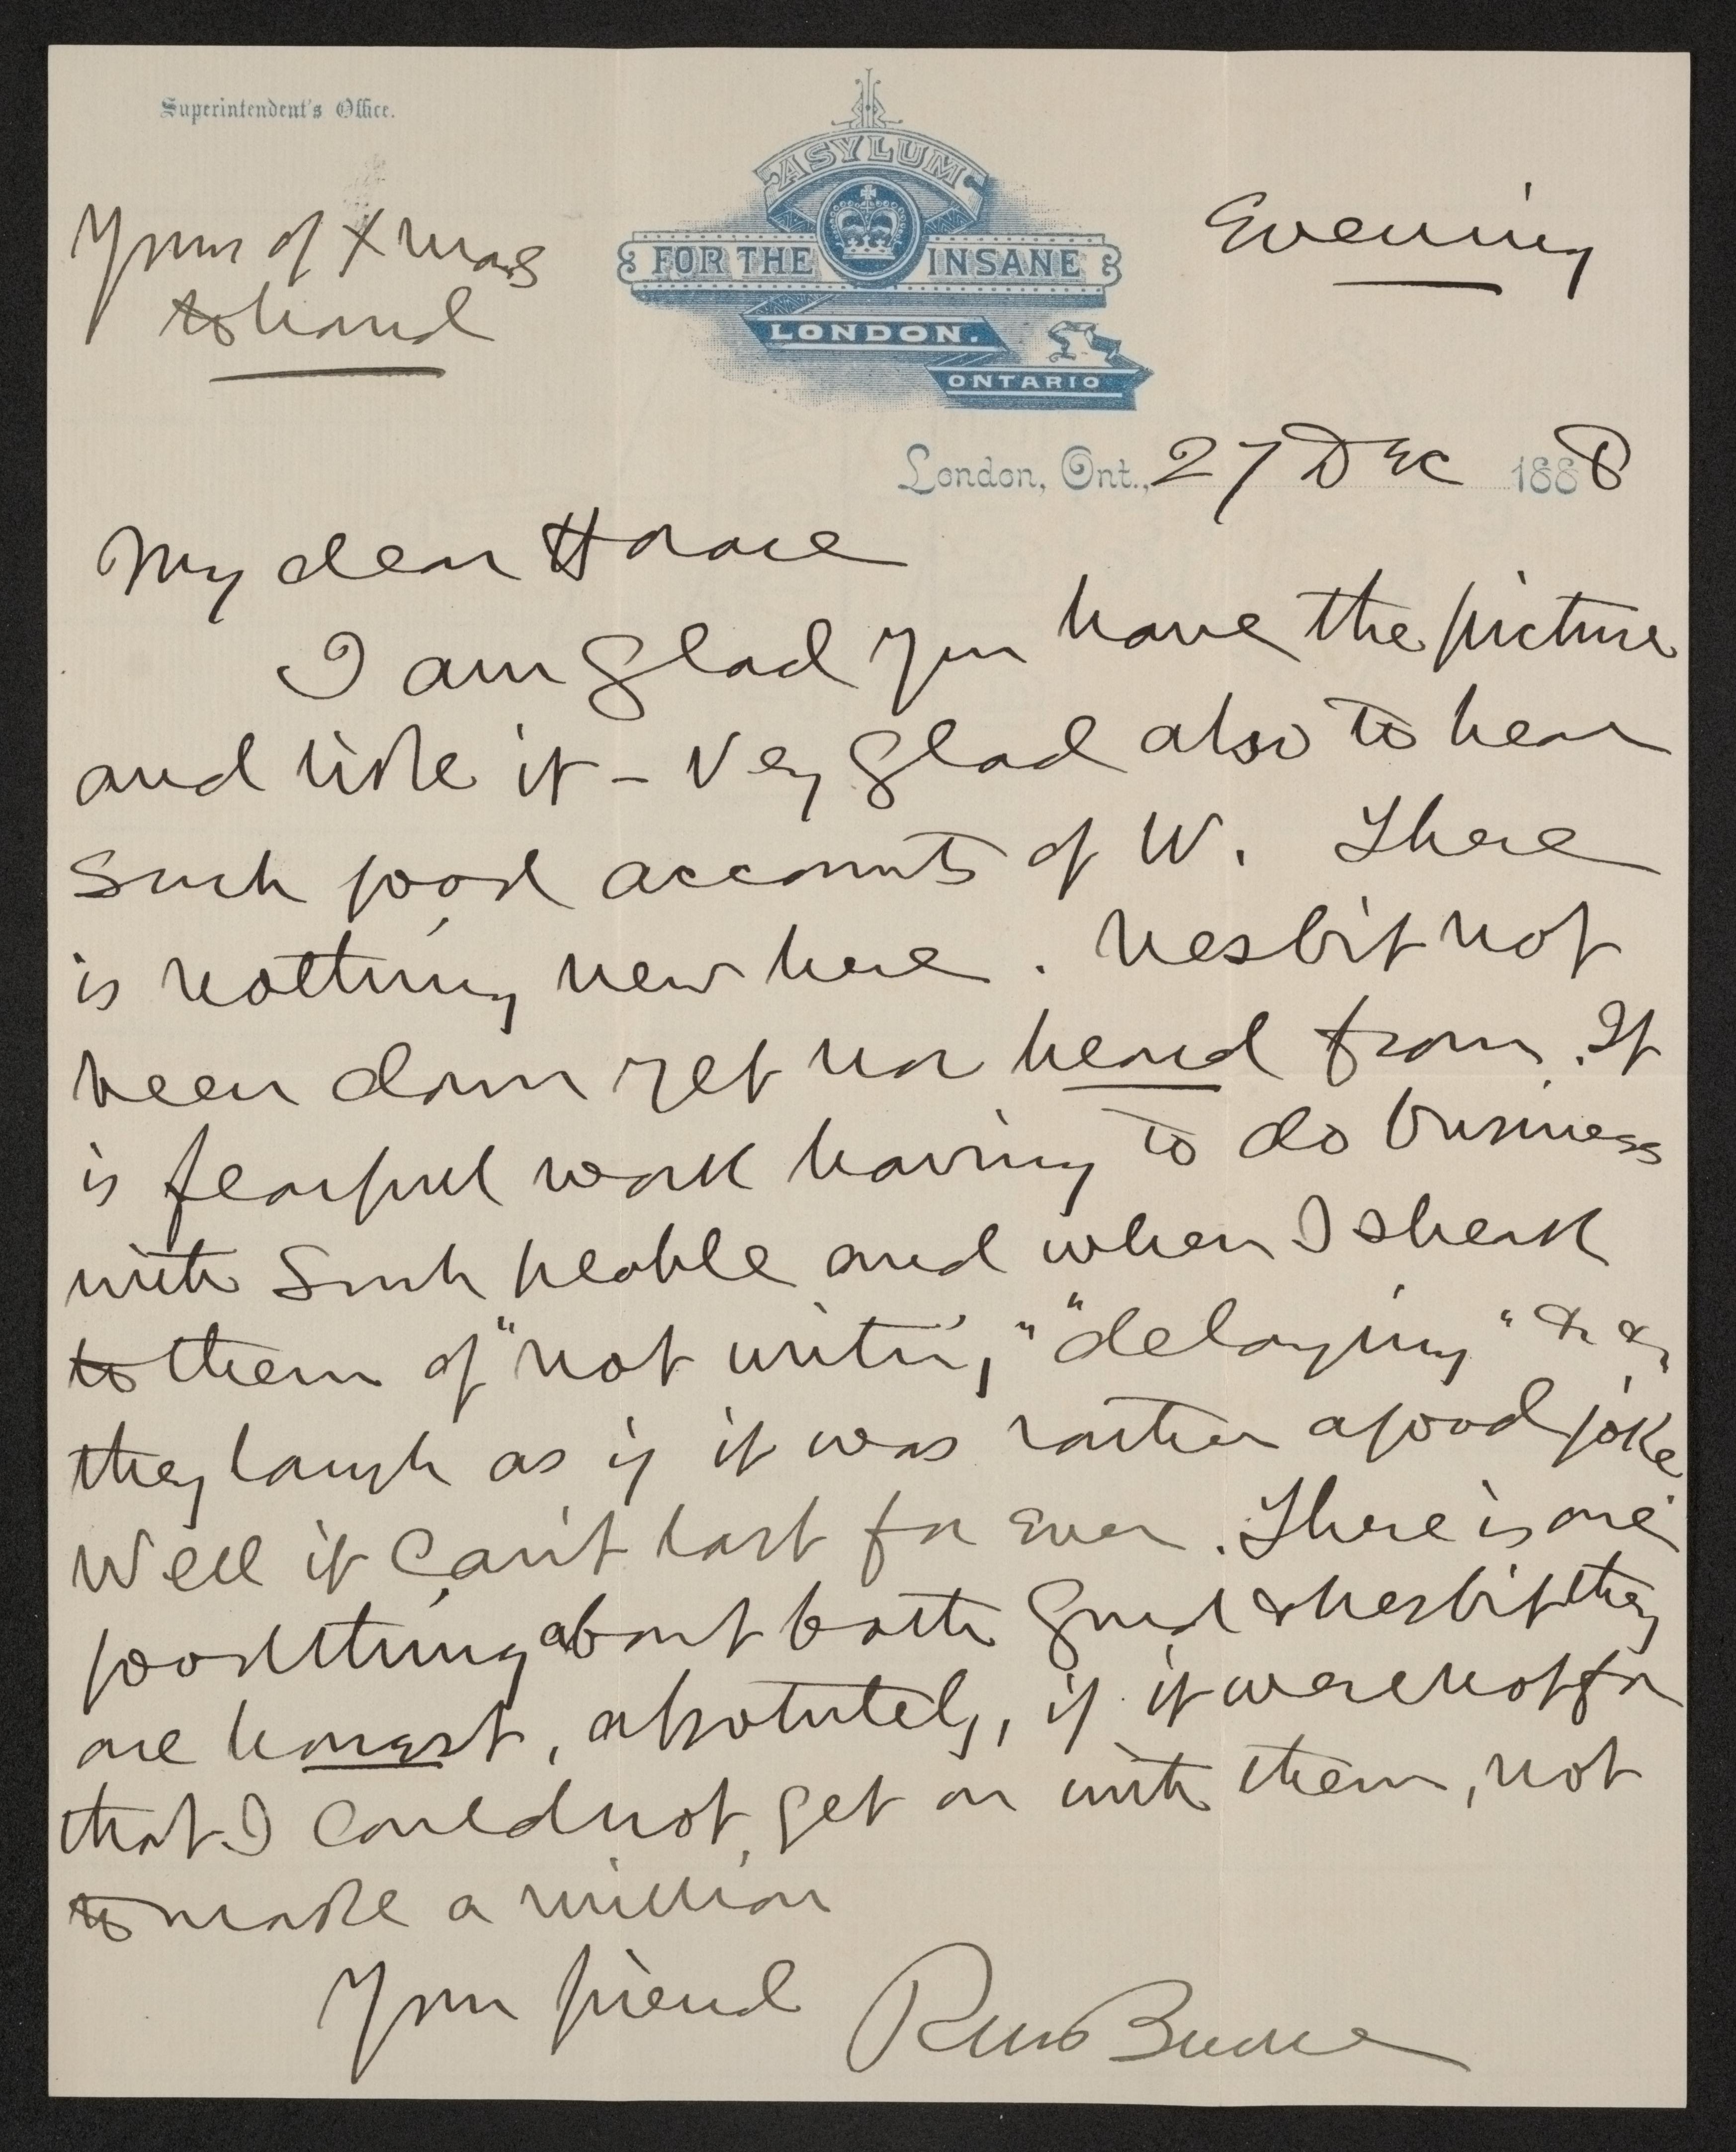 Superintendent's Office.
ASYLUM
FOR THE INSANE
LONDON.
ONTARIO
Yours of Xmas
to hand
Evening
London, Ont., 27 Dec 1888
My dear Horace
I am glad you have the picture
and like it – very glad also to hear
such good accounts of W. There
is nothing new here. Nesbit not
been down yet nor heard from. It
is fearful work having to do business
with such people and when I speak
to them of "not writing," "delaying" &c &c,
they laugh as if it was rather a good joke
Well it can't last for ever. There is one
good thing about both Gurd & Nesbit they
are honest, absolutely, if it were not for
that I could not get on with them, not
to make a million
Your friend RM Bucke